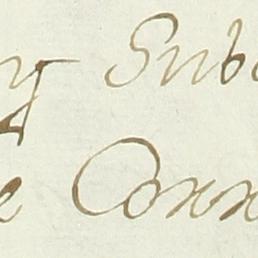 y Sub
e Conn